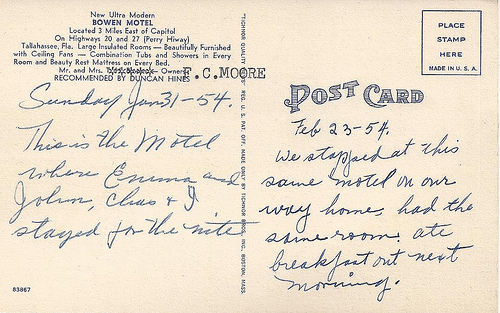 New Ultra Modern
BOWEN MOTEL
Located 3 Miles East of Capitol
On Highways 20 and 27 (Perry Hiway)
Tallahassee, Fla. Large Insulated Rooms — Beautifully Furnished
with Ceiling Fans — Combination Tubs and Showers in Every
Room and Beauty Rest Mattress on Every Bed.
Mr. and Mrs. F.C.MOORE Owners
RECOMMENDED BY DUNCAN HINES
Sunday Jan 31-54.
This is the Motel
where Emma and
John, Chas & I
stayed for the nite
83867
TICHNOR QUALITY VIEWS REG. U. S. PAT. OFF. MADE ONLY BY TICHNOR BROS., INC., BOSTON, MASS.
PLACE
STAMP
HERE
MADE IN U. S. A.
POST CARD
Feb 23-54.
We stopped at this
same motel on our
way home, had the
same room. ate
breakfast out next
morning.